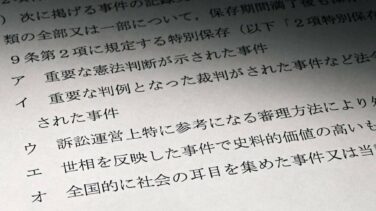 ）次に掲げる事件の記録
類の全部又は一部について，保存期間満了後も保存
９条第２項に規定する特別保存（以下「２項特別保存
ア　重要な憲法判断が示された事件
イ　重要な判例となった裁判がされた事件など法令
された事件
ウ　訴訟運営上特に参考になる審理方法により処
エ　世相を反映した事件で史料的価値の高いも
オ　全国的に社会の耳目を集めた事件又は当